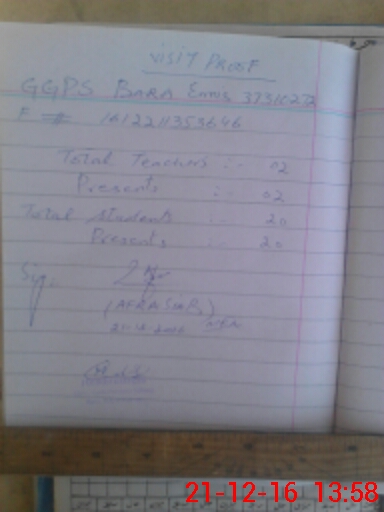 VISIT PROOF
GGPS BARA Emis 37310272
F # 1612211353646
Total Teachers :- 02
Presents :- 02
Total students :- 20
Presents :- 20
Sig.
21-12-16 13:58